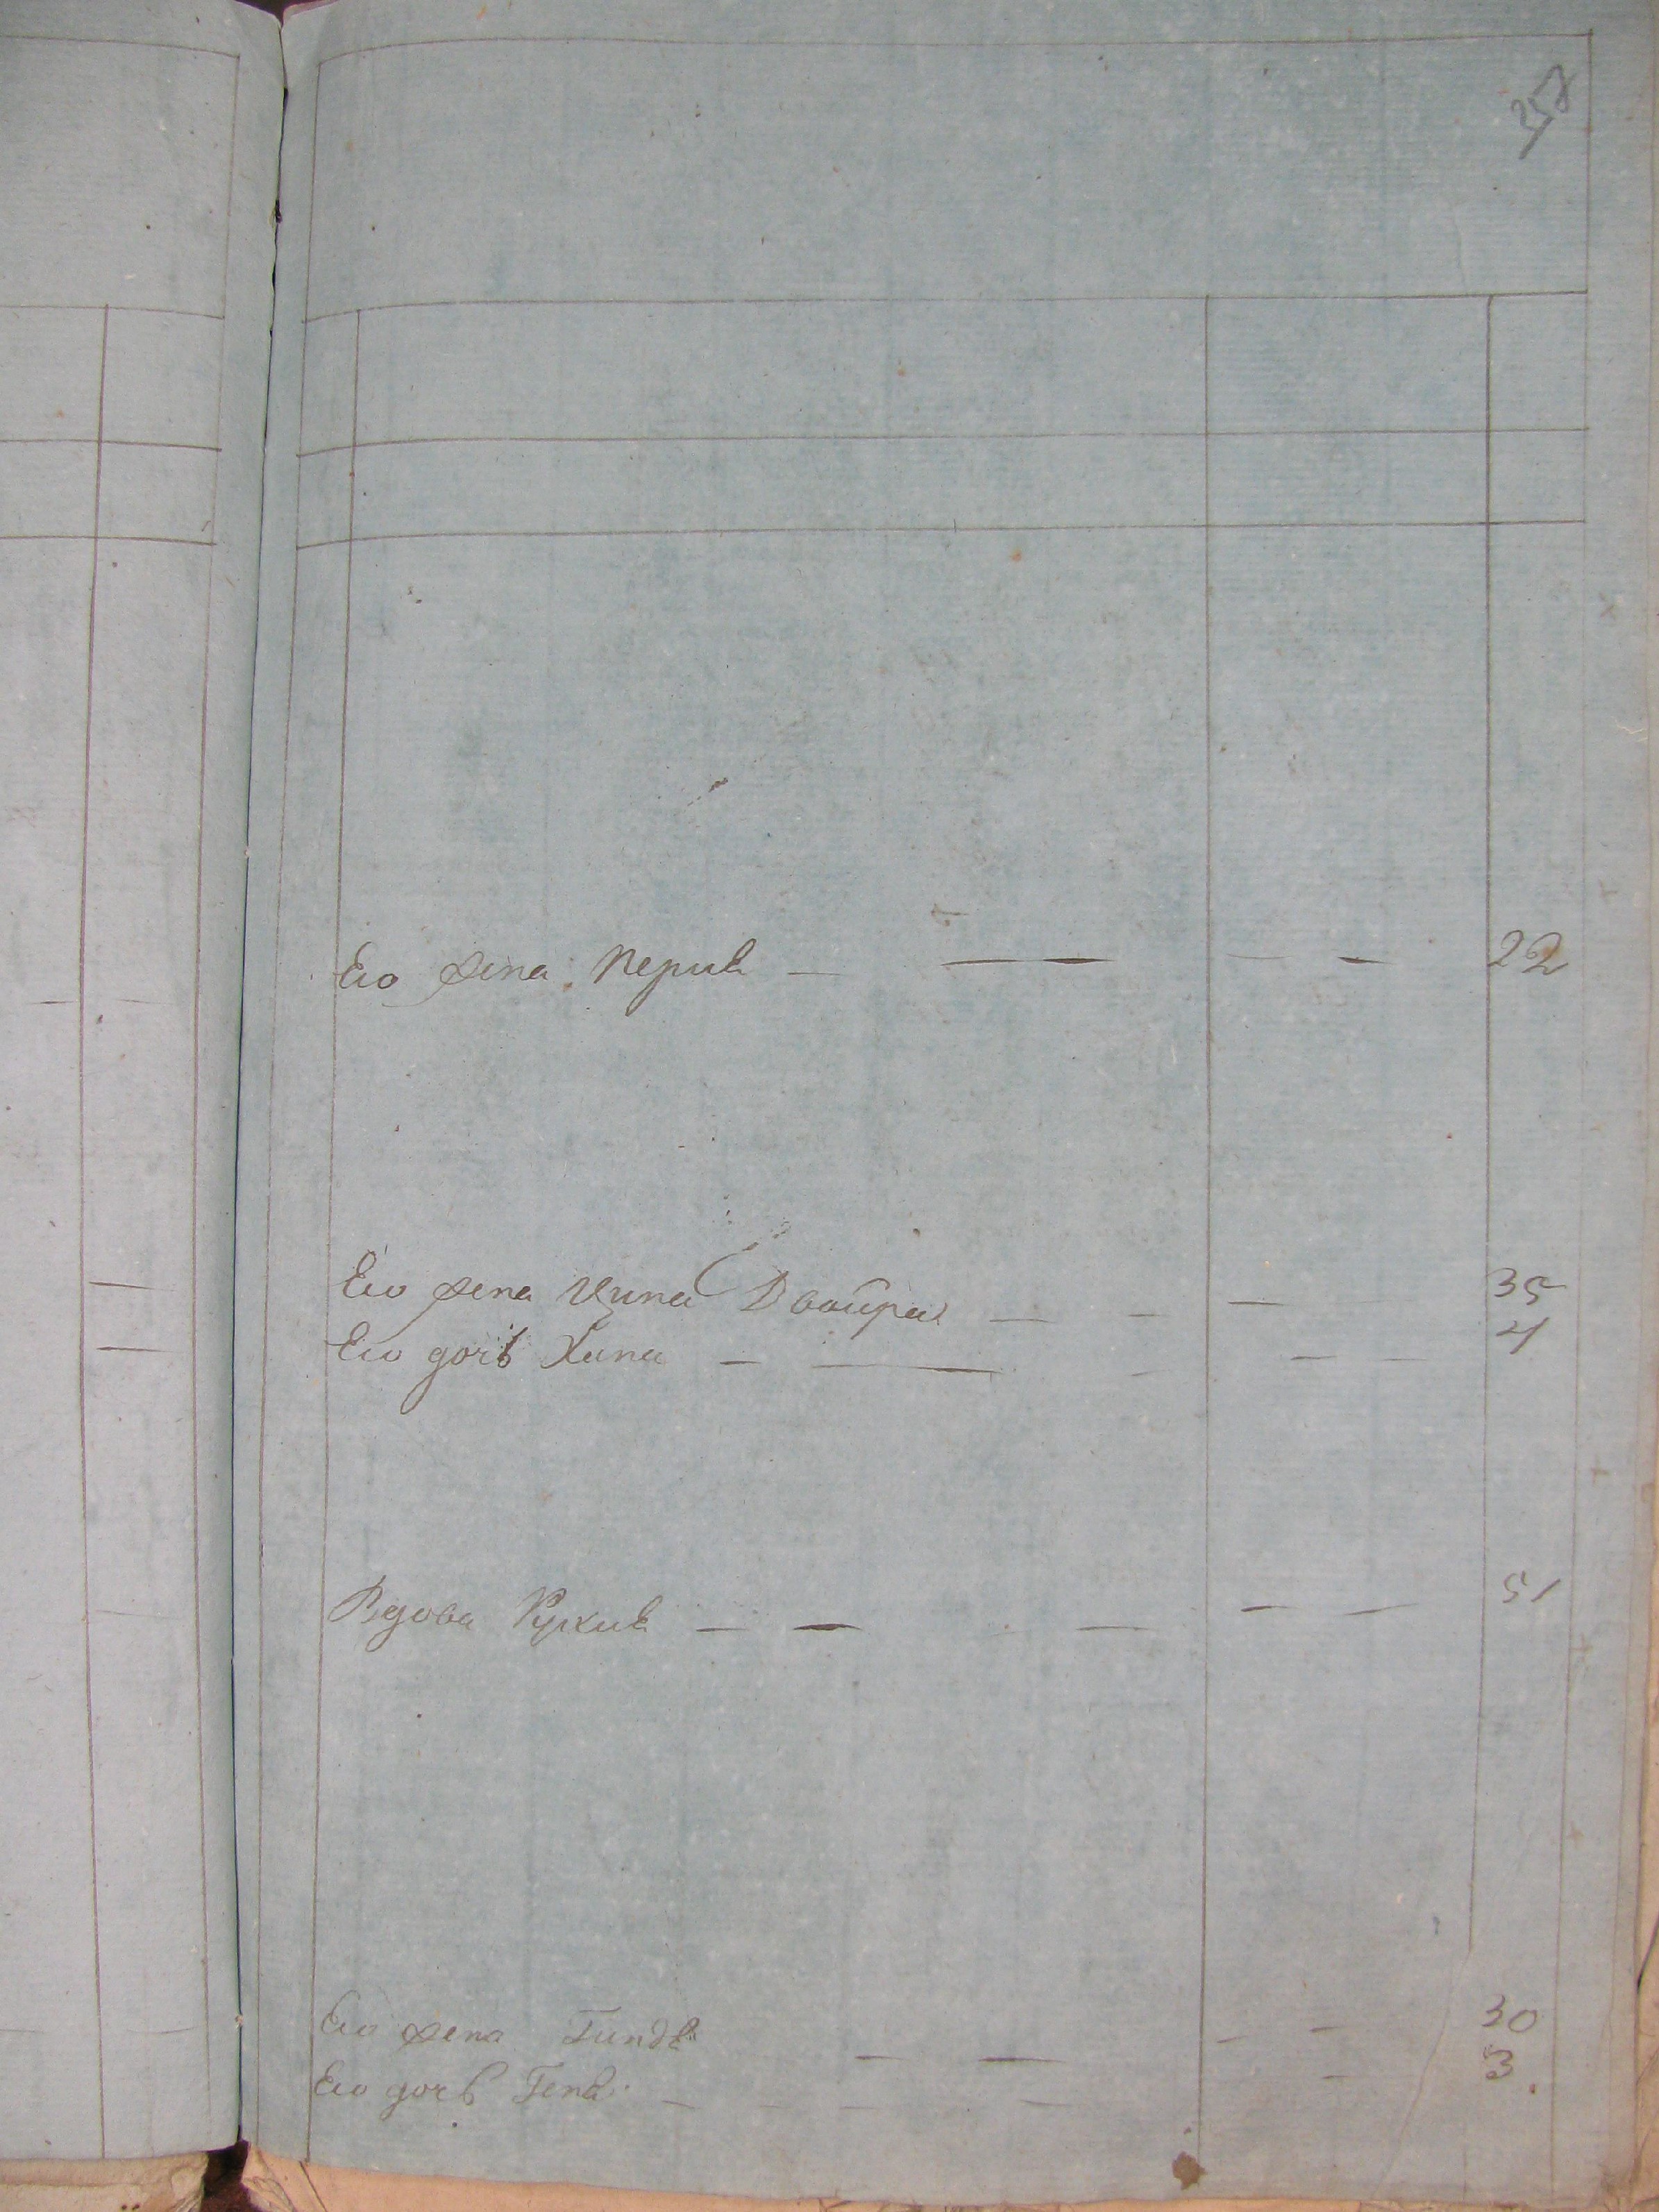 357
Его жена Перля — — — — 22
Его жена Ципа Двойра — — — 35
Его дочь Хана — — — — 4
Вдова Рухля — — — — — 51
Его жена Гинда — — — — 30
Его дочь Геня — — — — — 3